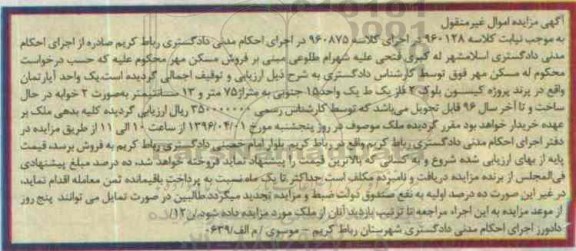 آگهی مزایده اموال غیرمنقول
به موجب نیابت کلاسه ۹۶۰۱۲۸ در اجرای کلاسه ۹۶۰۸۷۵ در اجرای احکام مدنی دادگستری رباط کریم صادره از اجرای احکام
مدنی دادگستری اسلامشهر له کبری فتحی علیه شهرام طلوعی مبنی بر فروش مسکن مهر محکوم علیه که حسب درخواست
محکوم له مسکن مهر فوق توسط کارشناس دادگستری به شرح ذیل ارزیابی و توقیف اجمالی گردیده است.یک واحد آپارتمان
واقع در پرند پروژه کیسون بلوک ۲ فاز یک ط یک واحد۱۵ جنوبی به متراژ۷۵ متر و ۱۳ سانتیمتر بصورت ۲ خوابه در حال
ساخت و تا آخر سال ۹۶ قابل تحویل می‌باشد که توسط کارشناس رسمی ۳۵۰۰۰۰۰۰۰ ریال ارزیابی گردیده کلیه بدهی ملک بر
عهده خریدار خواهد بود مقرر گردیده ملک موصوف در روز پنجشنبه مورخ ۱۳۹۶/۰۴/۰۱ از ساعت ۱۰ الی ۱۱ از طریق مزایده در
دفتر اجرای احکام مدنی دادگستری رباط کریم واقع در رباط کریم بلوار امام خمینی دادگستری رباط کریم به فروش برسد، قیمت
پایه از بهای ارزیابی شده شروع و به کسانی که بالاترین قیمت را پیشنهاد نماید فروخته خواهد شد ده درصد مبلغ پیشنهادی
فی‌المجلس از برنده مزایده دریافت و نامبرده مکلف است حداکثر تا یک ماه نسبت به پرداخت باقیمانده ثمن معامله اقدام نماید،
در غیر این صورت ده درصد اولیه به نفع صندوق دولت ضبط و مزایده تجدید میگردد.طالبین در صورت تمایل می توانند پنج روز
از موعد مزایده به این اجراء مراجعه تا ترتیب بازدید آنان از ملک مورد مزایده داده شود.ن/۱۲
دادورز اجرای احکام مدنی دادگستری شهرستان رباط کریم - موسوی /م الف/۰۶۳۹